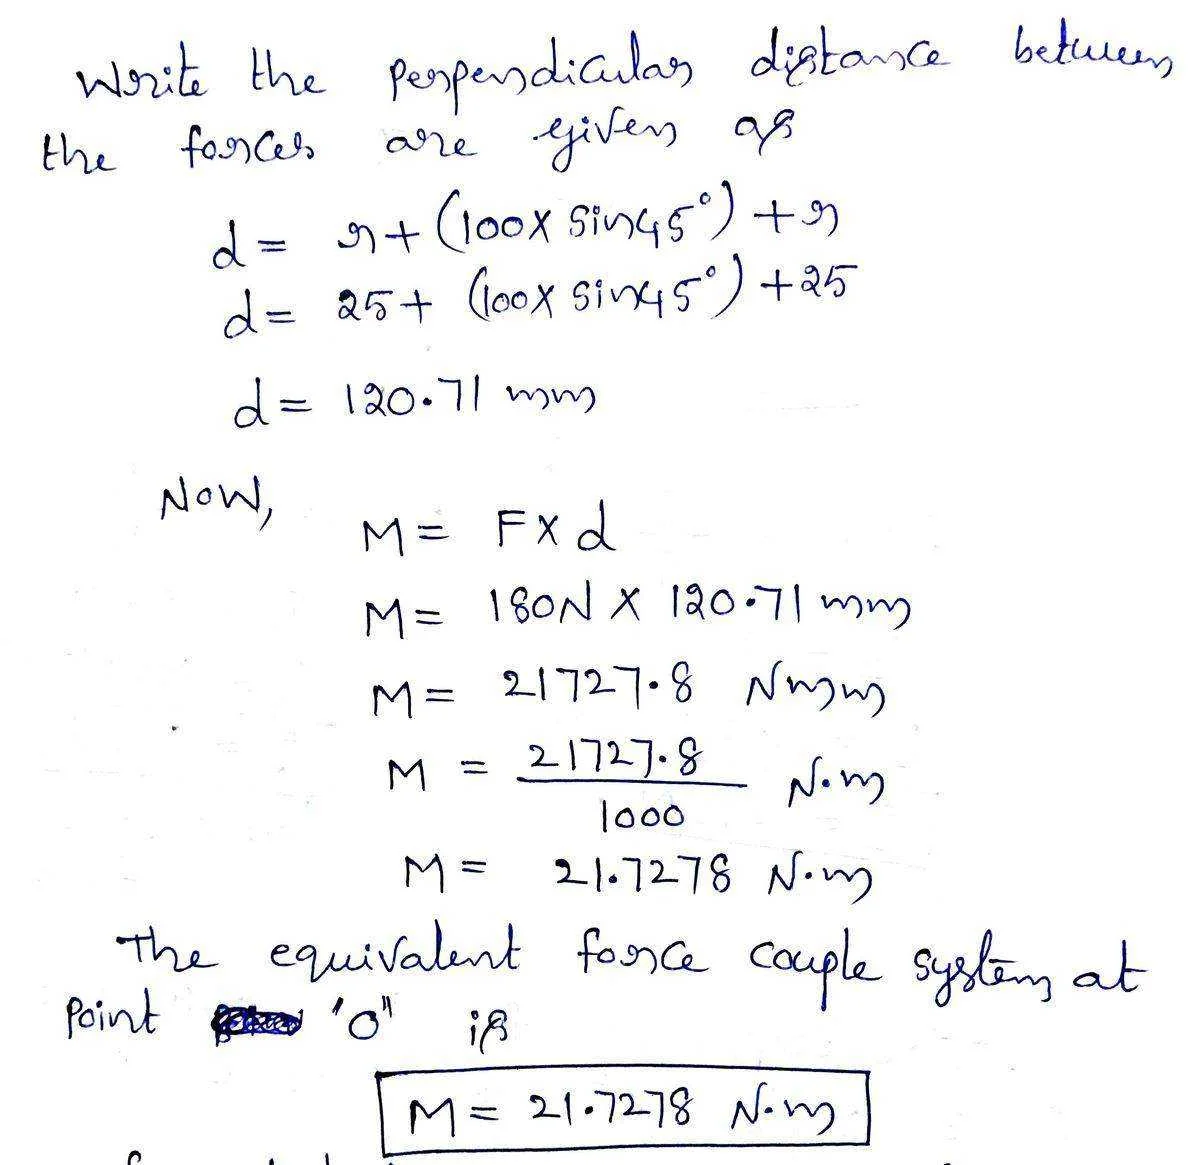 Write the perpendicular distance between
the forces are given as
d = r + (100 x sin45°) + r
d = 25 + (100 x sin45°) + 25
d = 120.71 mm
Now,
M = F x d
M = 180N x 120.71 mm
M = 21727.8 Nmm
M = 21727.8 / 1000 N.m
M = 21.7278 N.m
The equivalent force couple system at
point 'O" is
M = 21.7278 N.m